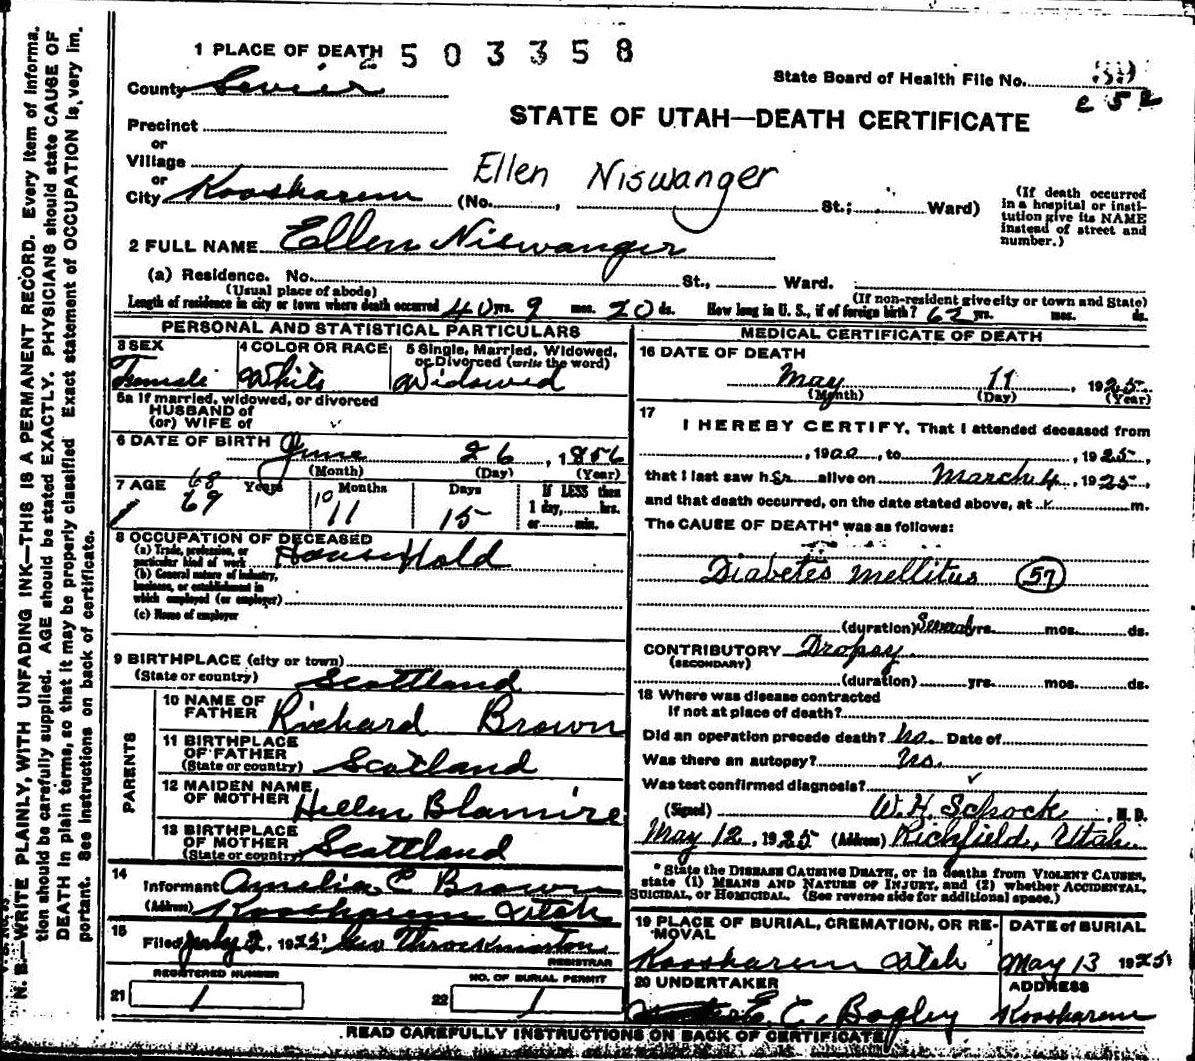 1 PLACE OF DEATH 2503358
State Board of Health File No.
County Sevier
e 52
STATE OF UTAH—DEATH CERTIFICATE
Precinct
or
Village
or
City Koosharem (No. , St.; Ward)
Ellen Niswanger
(If death occurred in a hospital or institution give its NAME instead of street and number.)
2 FULL NAME Ellen Niswanger
(a) Residence. No. St., Ward.
(Usual place of abode) (If non-resident give city or town and State)
Length of residence in city or town where death occurred 40 yrs. 9 mos. 20 ds. How long in U. S., if of foreign birth? 62 yrs. mos. ds.
PERSONAL AND STATISTICAL PARTICULARS
3 SEX 4 COLOR OR RACE 5 Single, Married, Widowed, or Divorced (write the word)
Female White Widowed
5a If married, widowed, or divorced
HUSBAND of
(or) WIFE of
6 DATE OF BIRTH June 26, 1856
(Month) (Day) (Year)
7 AGE Years Months Days If LESS than
68 10
69 11 15 1 day, hrs.
or min.
8 OCCUPATION OF DECEASED
(a) Trade, profession, or particular kind of work Household
(b) General nature of industry, business, or establishment in which employed (or employer)
(c) Name of employer
9 BIRTHPLACE (city or town)
(State or country) Scottland
PARENTS
10 NAME OF FATHER Richard Brown
11 BIRTHPLACE OF FATHER
(State or country) Scotland
12 MAIDEN NAME OF MOTHER Hellen Blamire
13 BIRTHPLACE OF MOTHER
(State or country) Scottland
14 Informant Amelia C Brown
(Address) Koosharem Utah
15 Filed July 2, 1925 Geo Throckmorton
REGISTRAR
REGISTERED NUMBER NO. OF BURIAL PERMIT
21 1 22 1
MEDICAL CERTIFICATE OF DEATH
16 DATE OF DEATH
May 11, 1925
(Month) (Day) (Year)
17
I HEREBY CERTIFY, That I attended deceased from
, 1920, to , 1925,
that I last saw her alive on March 4, 1925,
and that death occurred, on the date stated above, at m.
The CAUSE OF DEATH* was as follows:
Diabetes mellitus 57
(duration) Several yrs. mos. ds.
CONTRIBUTORY Dropsy
(SECONDARY)
(duration) yrs. mos. ds.
18 Where was disease contracted
if not at place of death?
Did an operation precede death? No. Date of
Was there an autopsy? No.
Was test confirmed diagnosis? ✓
(Signed) W. H. Schock, M. D.
May 12, 1925 (Address) Richfield, Utah
*State the DISEASE CAUSING DEATH, or in deaths from VIOLENT CAUSES,
state (1) MEANS AND NATURE OF INJURY, and (2) whether ACCIDENTAL,
SUICIDAL, or HOMICIDAL. (See reverse side for additional space.)
19 PLACE OF BURIAL, CREMATION, OR REMOVAL DATE of BURIAL
Koosharem Utah May 13 1925
20 UNDERTAKER ADDRESS
E. C. Bagley Koosharem
READ CAREFULLY INSTRUCTIONS ON BACK OF CERTIFICATE
N. B.—WRITE PLAINLY, WITH UNFADING INK—THIS IS A PERMANENT RECORD. Every item of information should be carefully supplied. AGE should be stated EXACTLY. PHYSICIANS should state CAUSE OF DEATH in plain terms, so that it may be properly classified Exact statement of OCCUPATION is very important. See instructions on back of certificate.